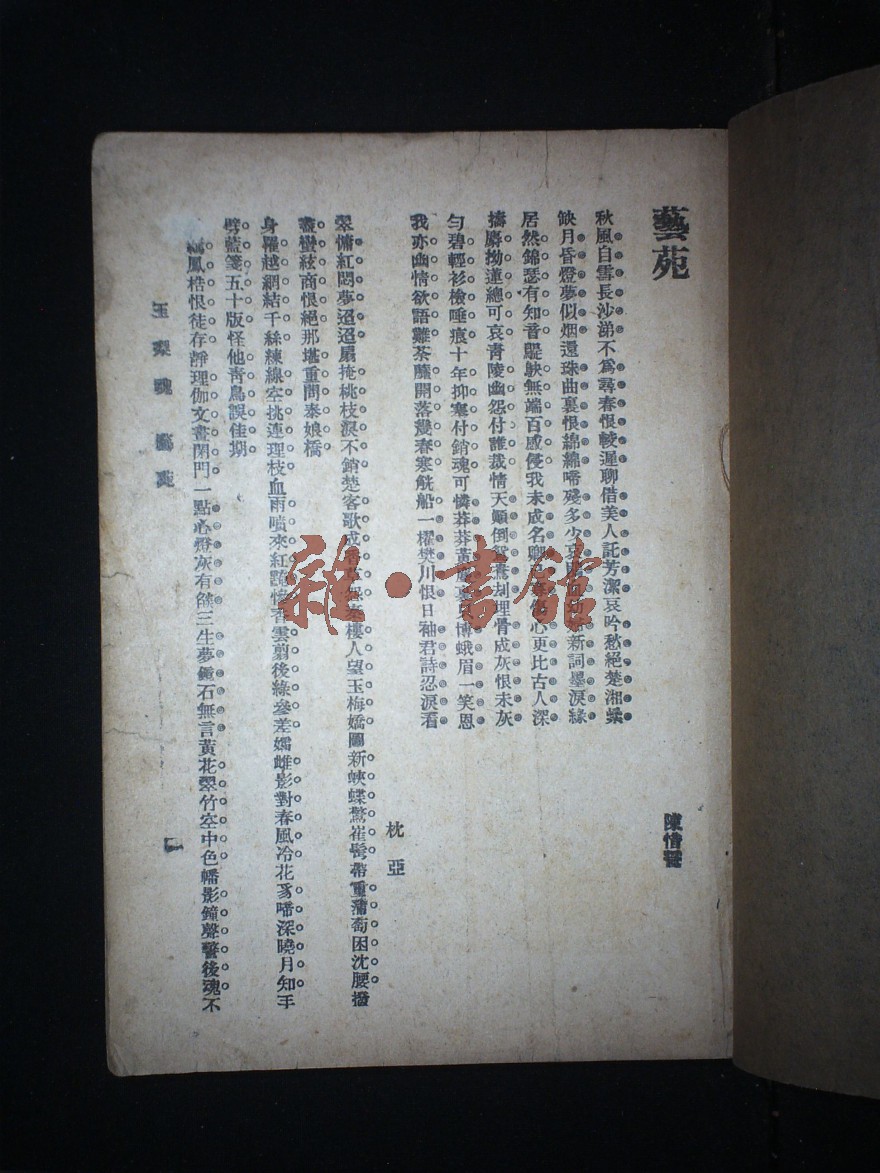 藝苑
陳惜誓
秋風白雪長沙涕不爲尋春恨較遲聊借美人託芳潔哀吟愁絕楚湘纍
缺月昏燈夢似烟還珠曲裏恨綿綿啼殘多少哀新詞墨淚緣
居然錦瑟有知音鶗鴂無端百感侵我未成名心更比古人深
擣麝拗蓮總可哀青陵幽怨付誰裁情天顚倒鴛鴦刦埋骨成灰恨未灰
勻碧輕衫檢唾痕十年抑塞付銷魂可憐莽莽黃博蛾眉一笑恩
我亦幽情欲語難荼蘼開落幾春寒觥船一櫂樊川恨日袖君詩忍淚看
枕亞
翠慵紅悶夢迢迢扇掩桃枝淚不銷楚客歌成樓人望玉梅嬌圖新蛺蝶驚崔鬢帶重蒲萄困沈腰撥
盡蠻絃商恨絕那堪重問泰娘橋
身羅越網結千絲練線空挑連理枝血雨噴來紅香雲翦後綠參差孀雌影對春風冷花豸啼深曉月知手
劈藍箋五十版怪他靑鳥誤佳期
鳳梏恨徒存靜理伽文晝閉門一點心燈灰有三生夢石無言黃花翠竹空中色幡影鐘聲警後魂不
玉梨魂 藝苑
一
雜·書館